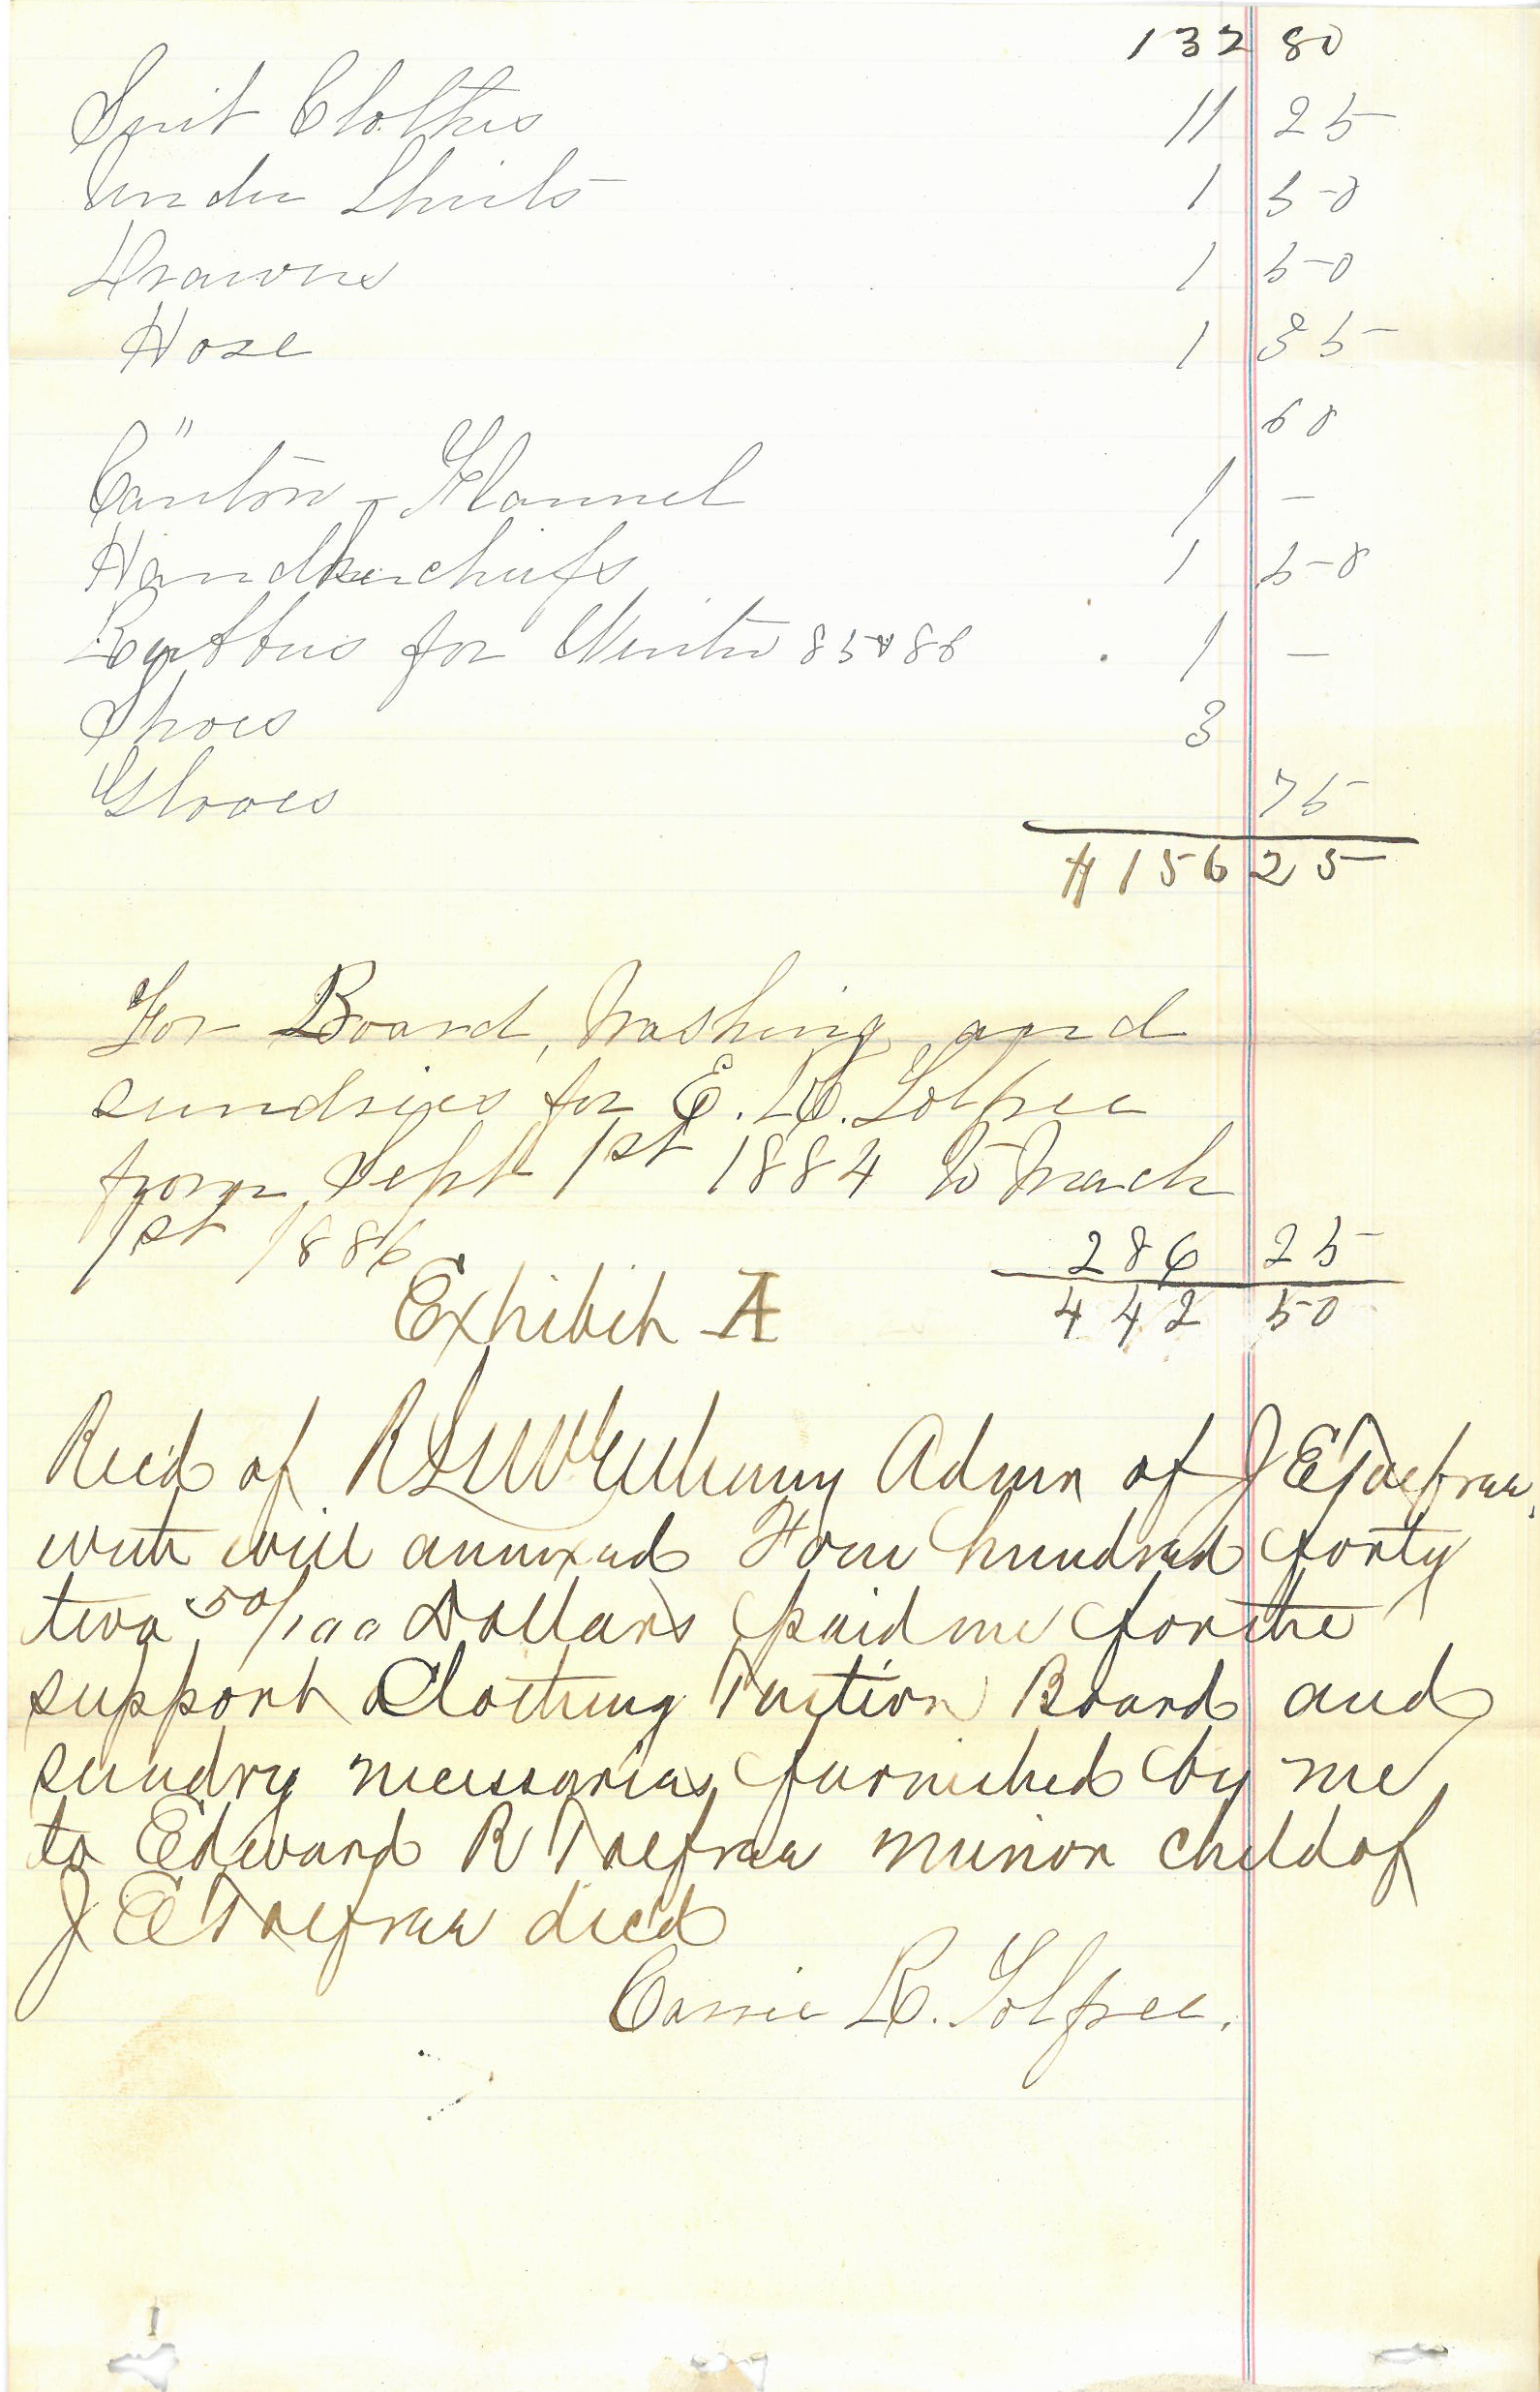 132 80
Suit Clothes 11 25
Under Shirts 1 50
Drawers 1 50
Hose 1 35
" 60
Canton-Flannel 1 —
Handkerchiefs 1 50
for Winter 85 & 86 1 —
Shoes 3
Gloves 75
$156 25
For Board, Washing and
sundries for E. R. Tolfree
from Sept 1st 1884 to March
1st 1886
286 25
Exhibit A
442 50
Recd of Admr of J E Tolfree
with will annexed Four hundred forty
two 50/100 Dollars paid me for the
support Clothing Tuition Board and
sundry necessaries furnished by me
to Edward R Tolfree minor child of
J E Tolfree decd
Carrie R. Tolfree.